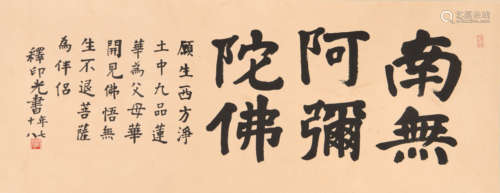 南無
阿彌
陀佛
願生西方淨
土中九品蓮
華為父母華
開見佛悟無
生不退菩薩
為伴侶
釋印光書
年七
十八